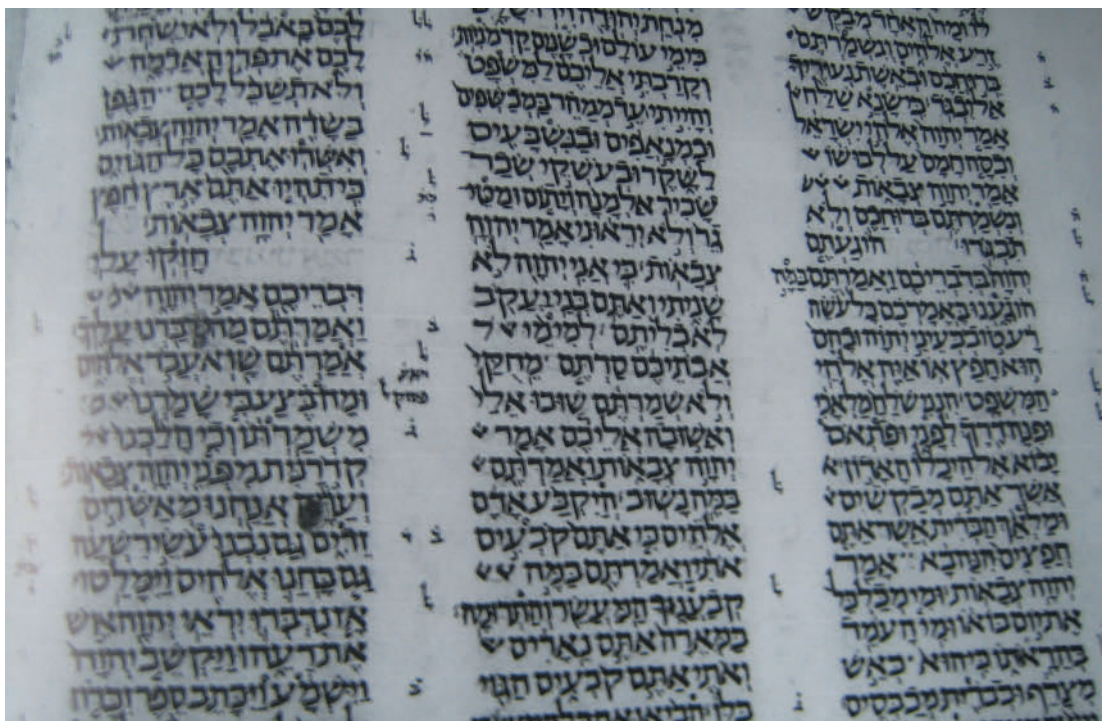 לו ומה האחד מבקש
זרע אלהים ונשמרתם
ברוחכם ובאשת נעוריך
אל יבגד כי שנא שלח
אמר יהוה אלהי ישראל
וכסה חמס על לבושו
אמר יהוה צבאות
ונשמרתם ברוחכם ולא
תבגדו הוגעתם
יהוה בדבריכם ואמרתם במה
הוגענו באמרכם כל עשה
רע טוב בעיני יהוה ובהם
הוא חפץ או איה אלהי
המשפט הנני שלח מלאכי
ופנה דרך לפני ופתאם
יבוא אל היכלו האדון
אשר אתם מבקשים
ומלאך הברית אשר אתם
חפצים הנה בא אמר
יהוה צבאות ומי מכלכל
את יום בואו ומי העמד
בהראותו כי הוא כאש
מצרף וכברית מכבסים
מנחת יהודה וירושלם
כימי עולם וכשנים קדמניות
וקרבתי אליכם למשפט
והייתי עד ממהר במכשפים
ובמנאפים ובנשבעים
לשקר ובעשקי שכר
שכיר אלמנה ויתום ומטי
גר ולא יראוני אמר יהוה
צבאות כי אני יהוה לא
שניתי ואתם בני יעקב
לא כליתם למימי
אבתיכם סרתם מחקי
ולא שמרתם שובו אלי
ואשובה אליכם אמר
יהוה צבאות ואמרתם
במה נשוב היקבע אדם
אלהים כי אתם קבעים
אתי ואמרתם במה
קבענוך המעשר והתרומה
במארה אתם נארים
ואתי אתם קבעים הגוי
לכם באכל ולא ישחת
לכם את פרי האדמה
ולא תשכל לכם הגפן
בשדה אמר יהוה צבאות
ואשרו אתכם כל הגוים
כי תהיו אתם ארץ חפץ
אמר יהוה צבאות
חזקו עלי
דבריכם אמר יהוה
ואמרתם מה נדברנו עליך
אמרתם שוא עבד אלהים
ומה בצע כי שמרנו
משמרתו וכי הלכנו
קדרנית מפני יהוה צבאות
ועתה אנחנו מאשרים
זדים גם נבנו עשי רשעה
גם בחנו אלהים וימלטו
אז נדברו יראי יהוה איש
את רעהו ויקשב יהוה
וישמע ויכתב ספר זכרון